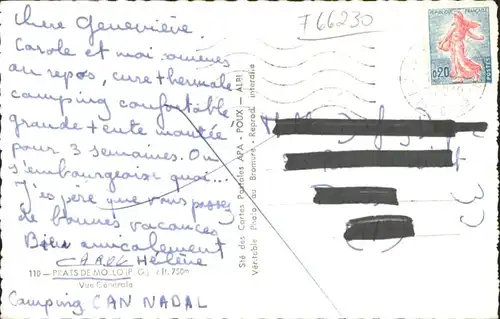 chère Geneviève.
Carole et moi sommes
au repos, cure thermale
camping confortable
grande tente montée
pour 3 semaines. On
s'embourgeoise quoi...
J'espère que vous passez
de bonnes vacances
Bien amicalement
CAROL Hélène
110 - PRATS DE MOLLO (P.-O.) alt. 750m
Vue Générale
Camping CAN NADAL
Sté des Cartes Postales APA - POUX - ALBI
Véritable Photo au Bromure - Reprod. interdite
F66230
REPUBLIQUE FRANÇAISE
0,20
POSTES